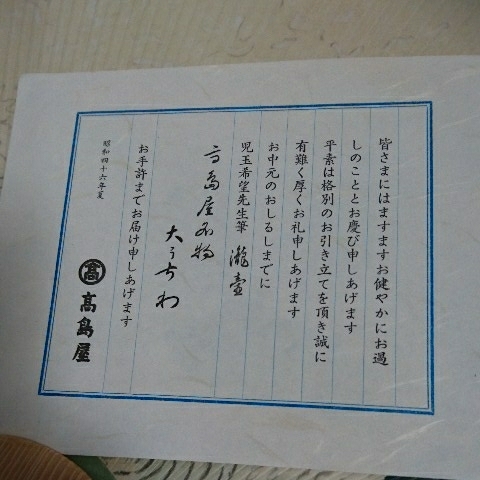 皆さまにはますますお健やかにお過
しのこととお慶び申しあげます
平素は格別のお引き立てを頂き誠に
有難く厚くお礼申しあげます
お中元のおしるしまでに
児玉希望先生筆 瀧壷
高島屋名物
大うちわ
お手許までお届け申しあげます
昭和四十六年夏
髙 髙島屋